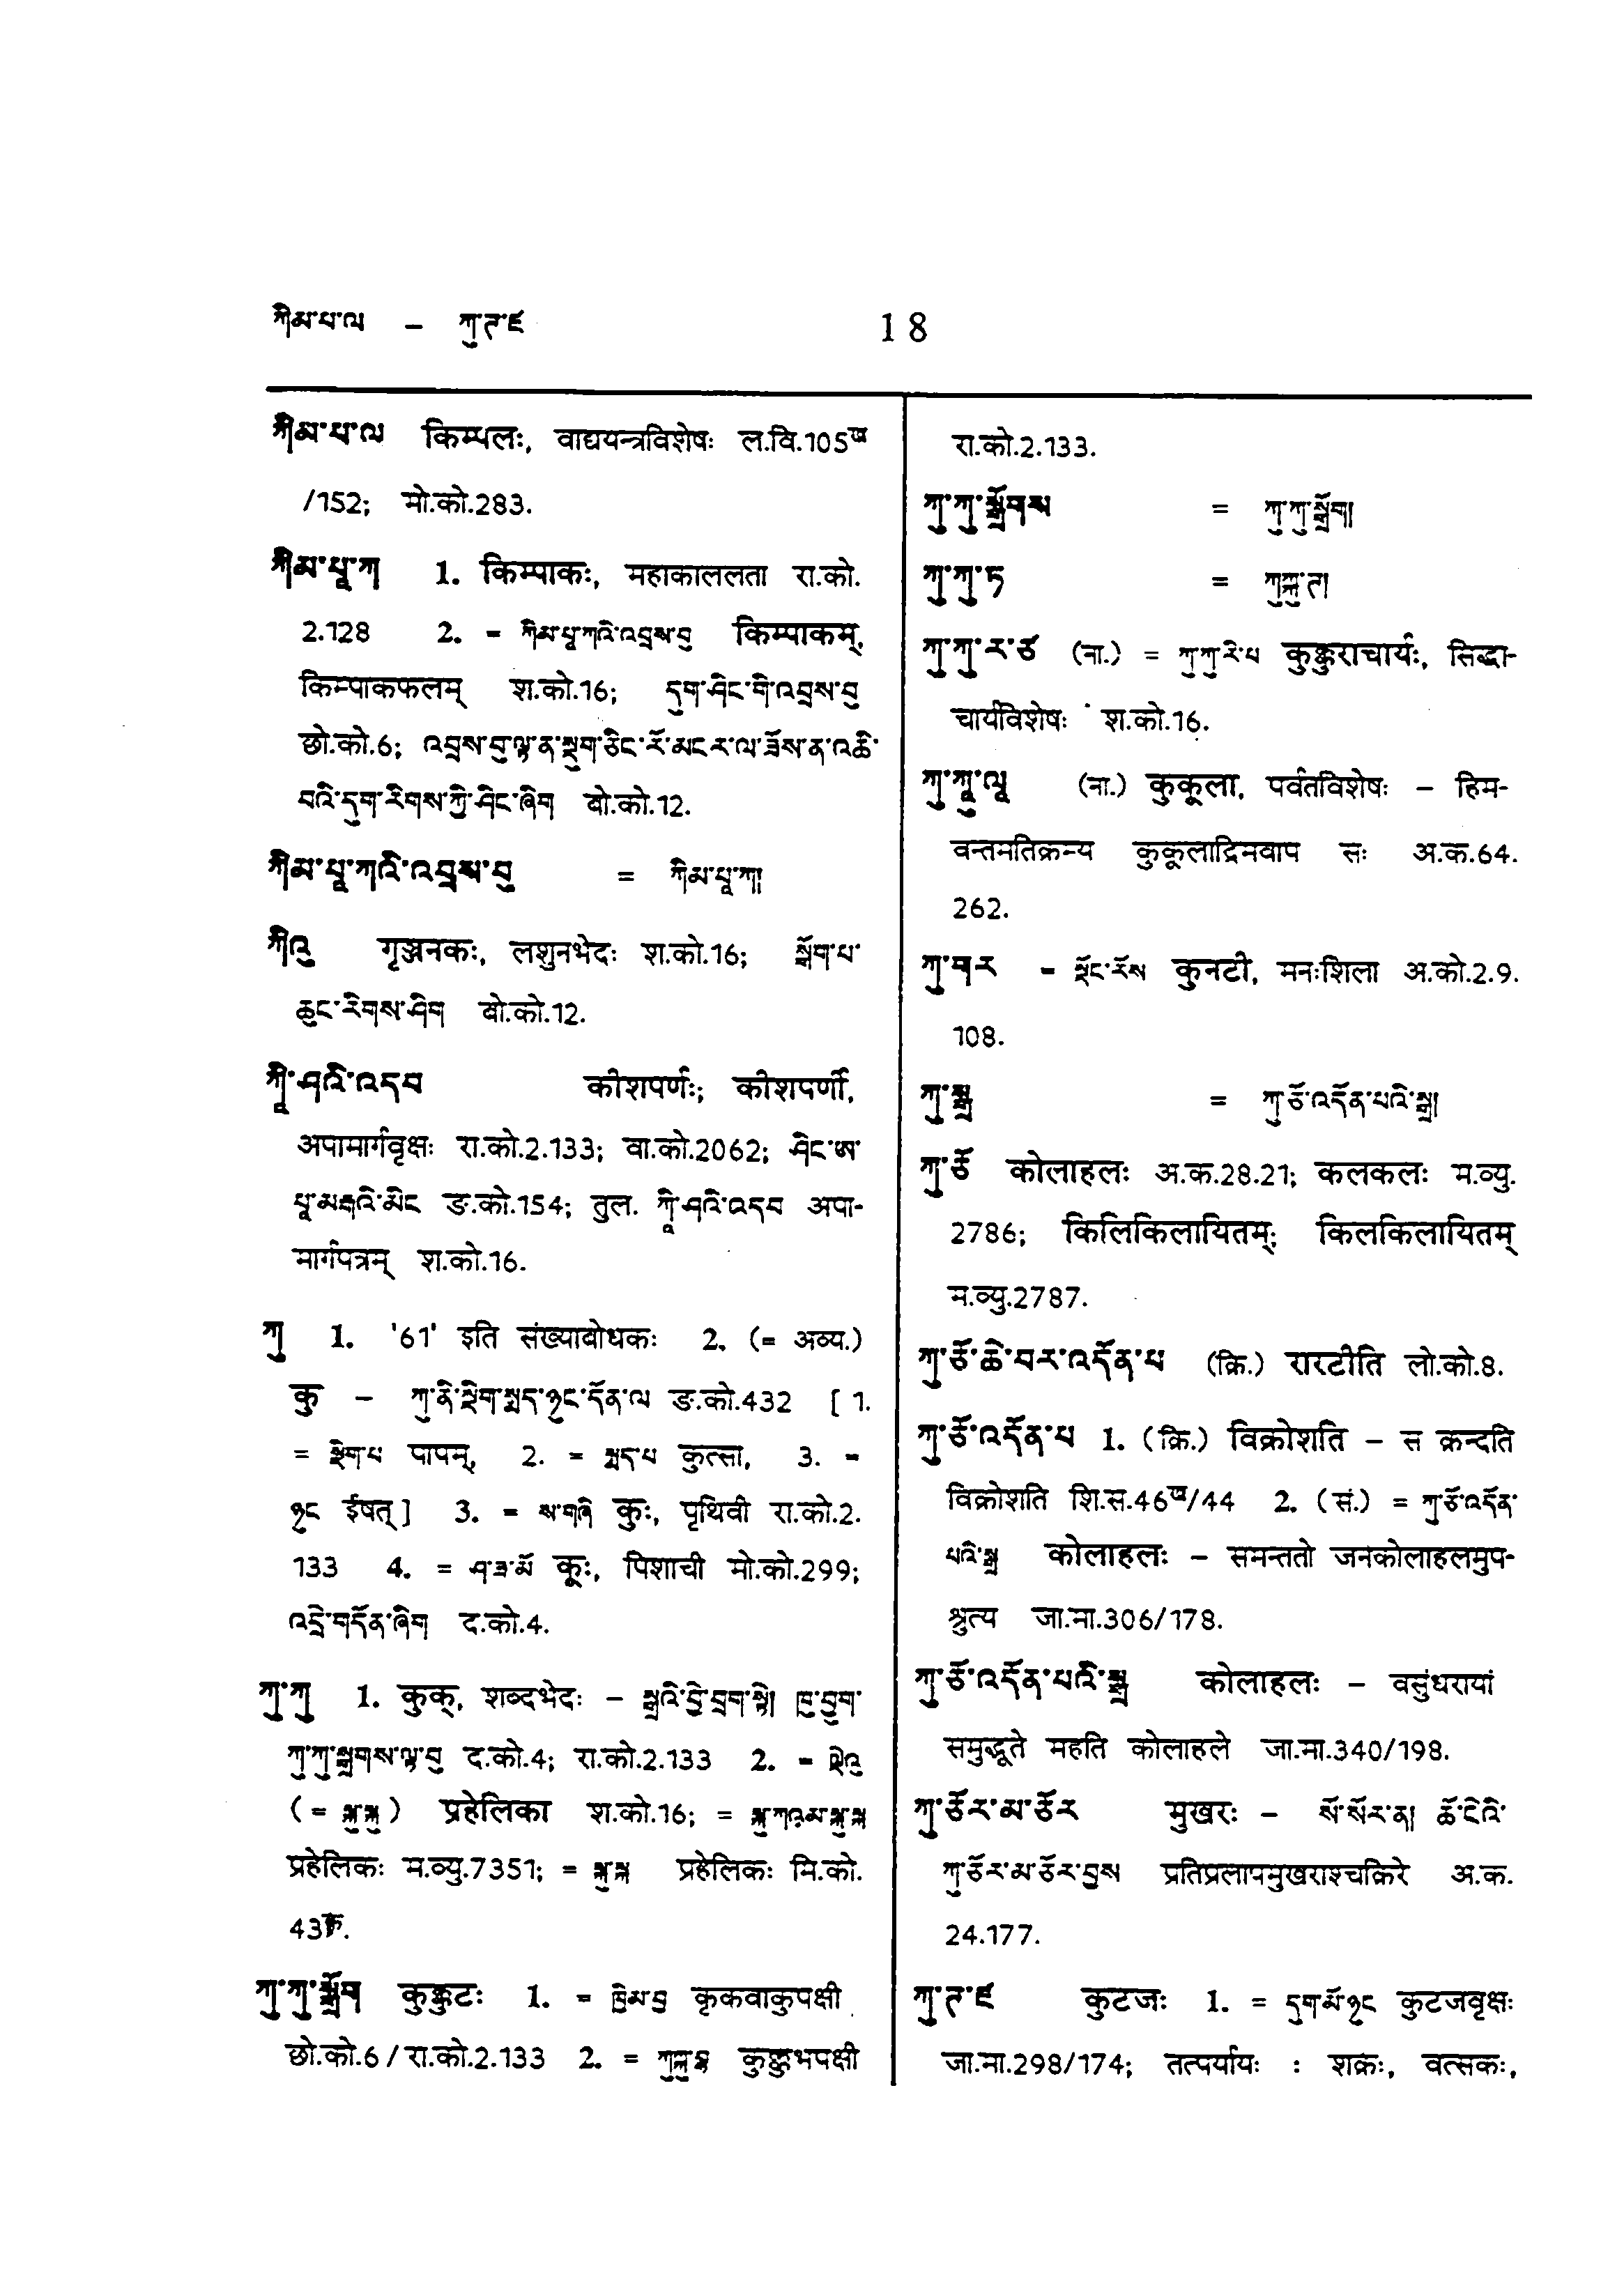 ཀིམ་པ་ལ – ཀུ་ཊ་ཛ 18
ཀིམ་པ་ལ किम्पलः, वाद्ययन्त्रविशेषः ल.वि.105ख
/152; मो.को.283.
ཀིམ་པཱ་ཀ 1. किम्पाकः, महाकाललता रा.को.
2.128 2. = ཀིམ་པཱ་ཀའི་འབྲས་བུ किम्पाकम्,
किम्पाकफलम् श.को.16; དུག་ཤིང་གི་འབྲས་བུ
छो.को.6; འབྲས་བུ་ལྟ་ན་སྡུག་ཅིང་རོ་མངར་ལ་ཟོས་ན་འཆི་
བའི་དུག་རིགས་ཀྱི་ཤིང་ཞིག बो.को.12.
ཀིམ་པཱ་ཀའི་འབྲས་བུ = ཀིམ་པཱ་ཀ།
ཀིའུ गृञ्जनकः, लशुनभेदः श.को.16; སྒོག་པ་
ཆུང་རིགས་ཤིག बो.को.12.
ཀཱི་ཤའི་འདབ कीशपर्णः; कीशपर्णी,
अपामार्गवृक्षः रा.को.2.133; वा.को.2062; ཤིང་ཨ་
པཱ་མརྒའི་མིང ङ.को.154; तुल. ཀཱི་ཤའི་འདབ अपा-
मार्गपत्रम् श.को.16.
ཀུ 1. '61' इति संख्याबोधकः 2. (= अव्य.)
कु – ཀུ་ནི་སྡིག་སྨད་ཉུང་དོན་ལ ङ.को.432 [ 1.
= སྡིག་པ पापम्, 2. = སྨད་པ कुत्सा, 3. =
ཉུང ईषत् ] 3. = ས་གཞི कुः, पृथिवी रा.को.2.
133 4. = ཤ་ཟ་མོ कूः, पिशाची मो.को.299;
འདྲེ་གདོན་ཞིག द.को.4.
ཀུ་ཀུ 1. कुक्, शब्दभेदः – སྒྲའི་བྱེ་བྲག་སྟེ། ཁུ་བྱུག་
ཀུ་ཀུ་སྒྲགས་ལྟ་བུ द.को.4; रा.को.2.133 2. = ལྡེའུ
(= ) प्रहेलिका श.को.16; =
प्रहेलिकः म.व्यु.7351; = प्रहेलिकः मि.को.
43क.
ཀུ་ཀུ་སྒྲོག कुक्कुटः 1. = ཁྱིམ་བྱ कृकवाकुपक्षी
छो.को.6 / रा.को.2.133 2. = कुक्कुभपक्षी
रा.को.2.133.
ཀུ་ཀུ་སྒྲོགས = ཀུ་ཀུ་སྒྲོག།
ཀུ་ཀུ་ཏ = ཀུཀྐུ་ཊ།
ཀུ་ཀུ་ར་ཙ (ना.) = ཀུ་ཀུ་རི་པ कुक्कुराचार्यः, सिद्धा-
चार्यविशेषः श.को.16.
ཀུ་ཀཱུ་ལཱ (ना.) कुकूला, पर्वतविशेषः – हिम-
वन्तमतिक्रम्य कुकूलाद्रिमवाप सः अ.क.64.
262.
ཀུ་གར = ལྡོང་རོས कुनटी, मनःशिला अ.को.2.9.
108.
ཀུ་སྒྲ = ཀུ་ཅོ་འདོན་པའི་སྒྲ།
ཀུ་ཅོ कोलाहलः अ.क.28.21; कलकलः म.व्यु.
2786; किलिकिलायितम्; किलकिलायितम्
म.व्यु.2787.
ཀུ་ཅོ་ཆེ་བར་འདོན་པ (क्रि.) रारटीति लो.को.8.
ཀུ་ཅོ་འདོན་པ 1. (क्रि.) विक्रोशति – स क्रन्दति
विक्रोशति शि.स.46ख/44 2. (सं.) = ཀུ་ཅོ་འདོན་
པའི་སྒྲ कोलाहलः – समन्ततो जनकोलाहलमुप-
श्रुत्य जा.मा.306/178.
ཀུ་ཅོ་འདོན་པའི་སྒྲ कोलाहलः – वसुंधरायां
समुद्भूते महति कोलाहले जा.मा.340/198.
ཀུ་ཅོར་མ་ཅོར मुखरः – སོ་སོར་ན། ཆོ་ངེའི་
ཀུ་ཅོར་མ་ཅོར་བྱས प्रतिप्रलापमुखराश्चक्रिरे अ.क.
24.177.
ཀུ་ཊ་ཛ कुटजः 1. = དུག་མོ་ཉུང कुटजवृक्षः
जा.मा.298/174; तत्पर्यायः : शक्रः, वत्सकः,